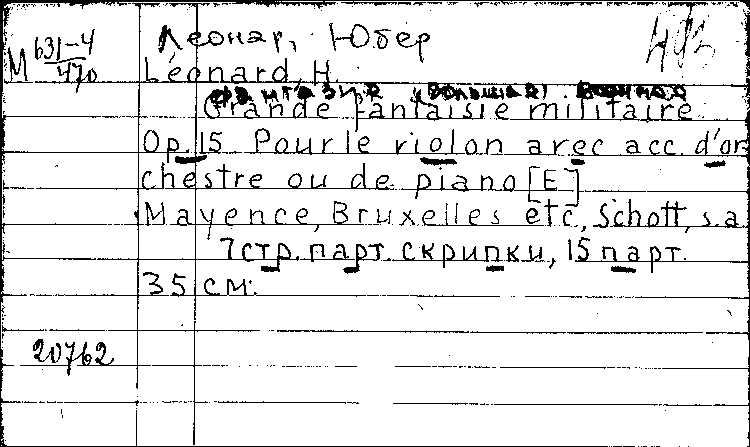 М 631-4
470
Леонар, Юбер
Léonard, H.
Фантазия (большая) военная
Grande fantaisie militaire
Op. 15 Pour le violon avec acc. d'or
chestre ou de piano [E]
Mayence, Bruxelles etc, Schott, s.a
7 стр. парт. скрипки, 15 парт.
35 см.
20762